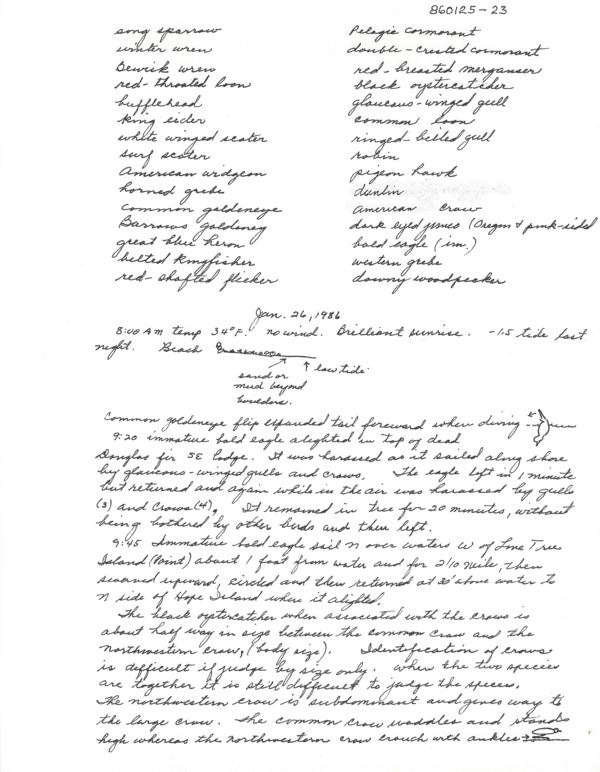 860125-23
song sparrow
winter wren
Bewick wren
red-throated loon
bufflehead
king eider
white winged scoter
surf scoter
American widgeon
horned grebe
common goldeneye
Barrows goldeney
great blue heron
belted kingfisher
red-shafted flicker
Pelagic cormorant
double-crested cormorant
red-breasted merganser
black oystercatcher
glaucous-winged gull
common loon
ringed-billed gull
robin
pigeon hawk
dunlin
american crow
dark eyed junco (Oregon & pink-sided
bald eagle (im.)
western grebe
downy woodpecker
Jan. 26, 1986
8:00 AM temp 34°F. no wind. Brilliant sunrise. -1.5 tide last
night. Beach
sand or
mud beyond
boulders.
low tide.
Common goldeneye flip expanded tail foreward when diving
9:20 immature bald eagle alighted in top of dead
Douglas fir SE lodge. It was harassed as it sailed along shore
by glaucous-winged gulls and crows. The eagle left in 1 minute
but returned and again while in the air was harassed by gulls
(3) and crows (4). It remained in tree for 20 minutes, without
being bothered by other birds and then left.
9:45 Immature bald eagle sail N over waters W of Lone Tree
Island (Point) about 1 foot from water and for 2/10 mile, then
swooped upward, circled and then returned at 30' above water to
N side of Hope Island where it alighted.
The black oystercatcher when associated with the crows is
about half way in size between the common crow and the
northwestern crow, (body size). Identification of crows
is difficult if judge by size only. When the two species
are together it is still difficult to judge the species.
The northwestern crow is subdominant and gives way to
the large crow. The common crow waddles and stands
high whereas the northwestern crow crouch with ankles